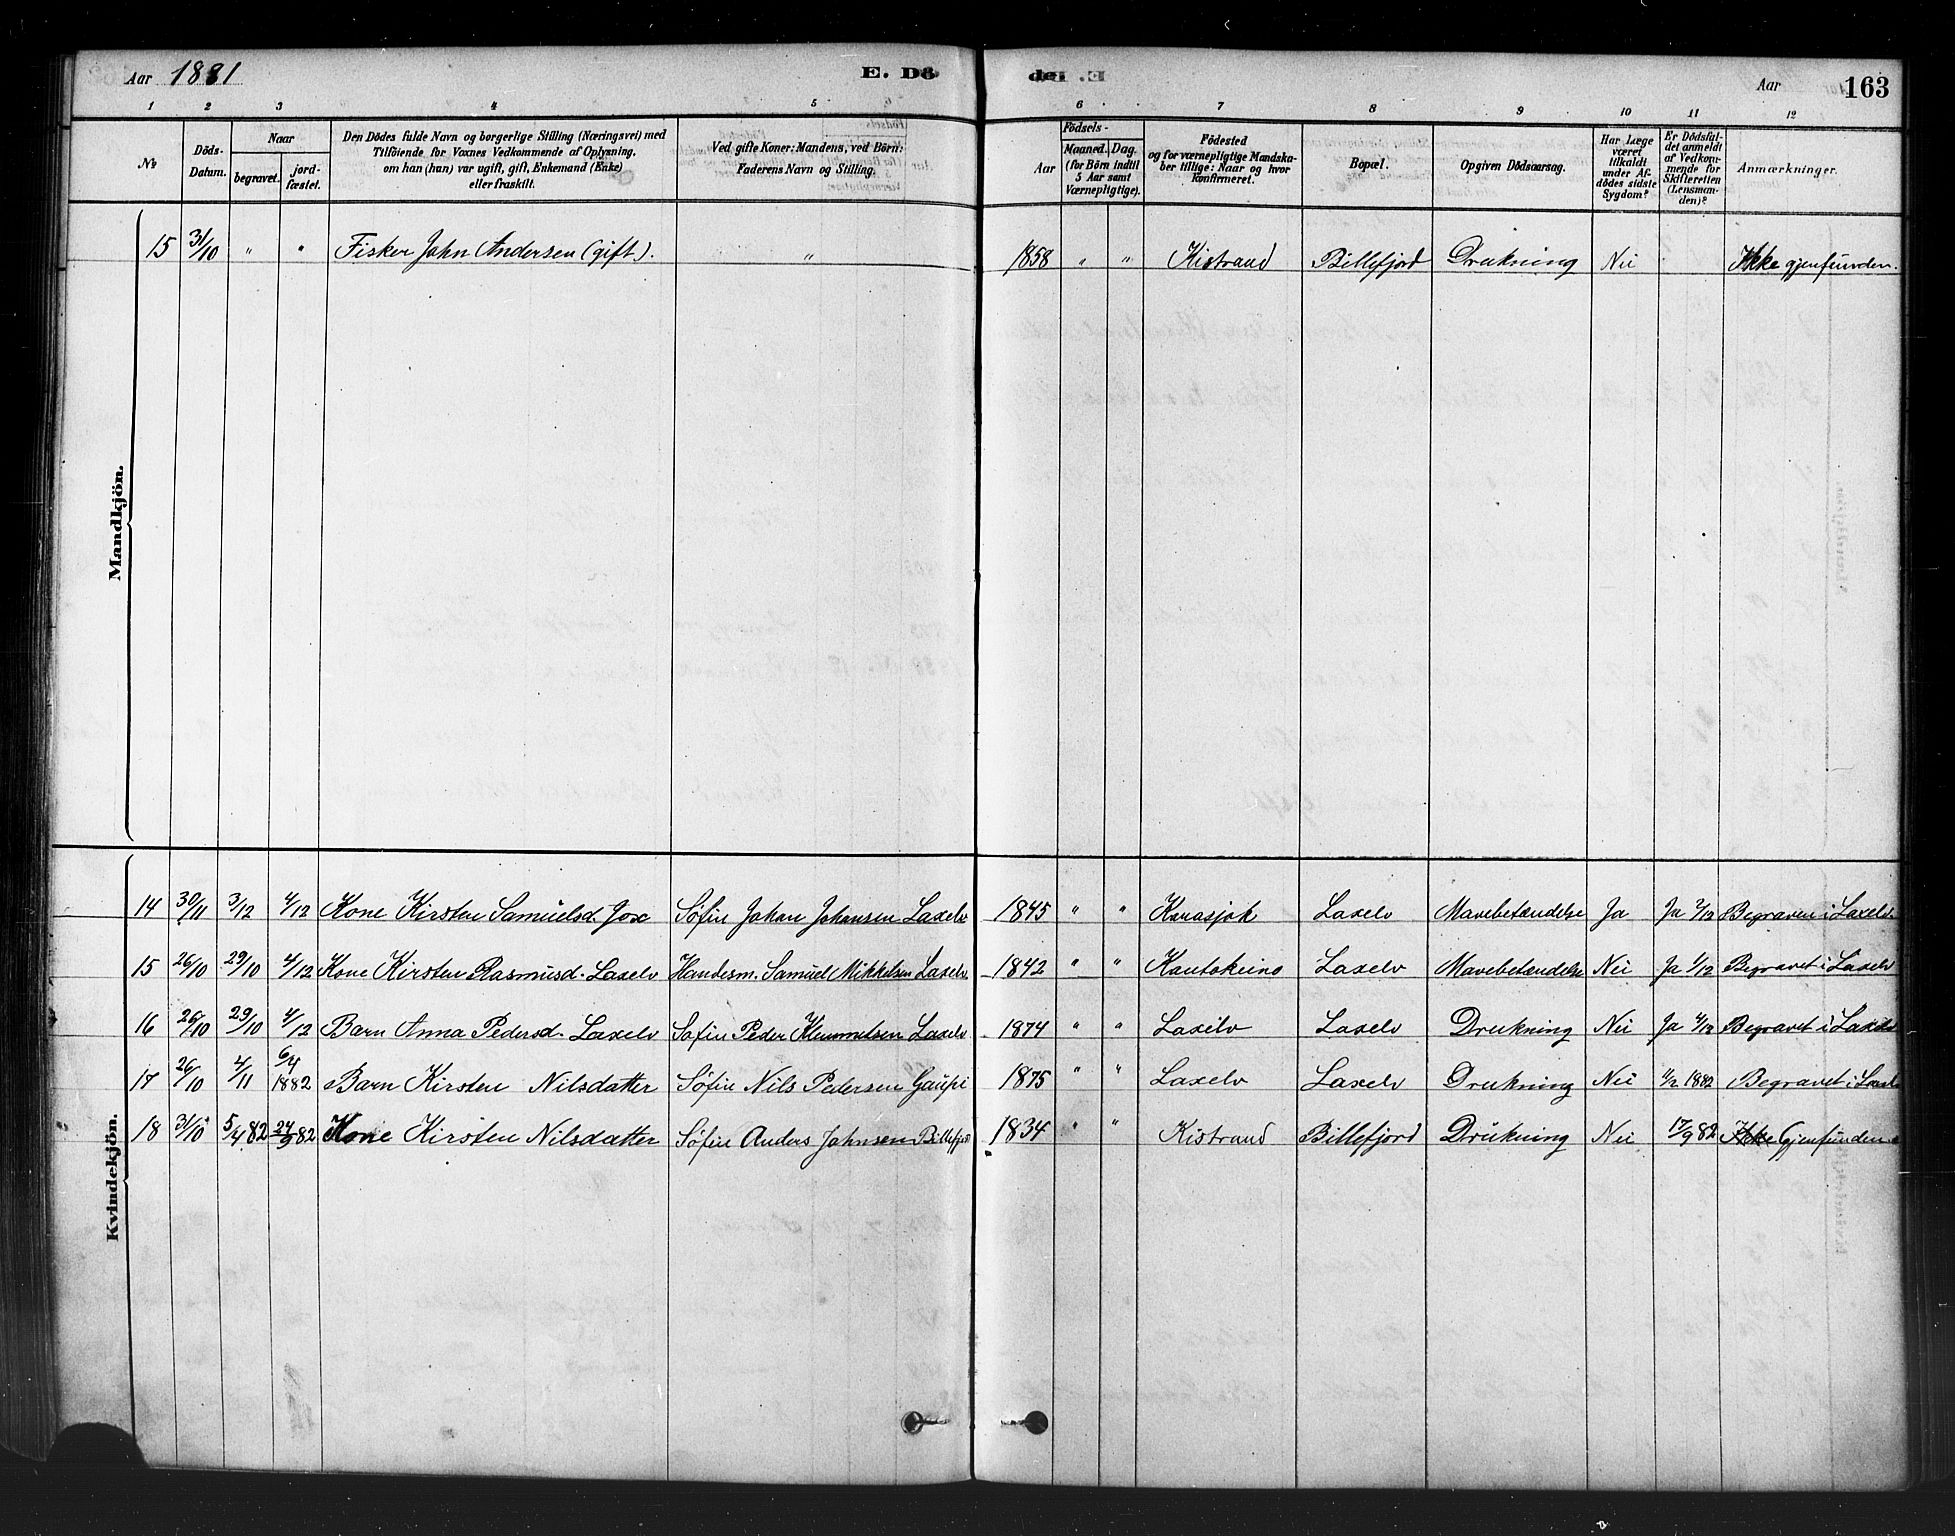 Aar 1881 E. Dö
de. Aar 163
1 2 3 4 5 6 7 8 9 10 11 12
No Döds-Datum. Naar begravet. jordfæstet. Den Dödes fulde Navn og borgerlige Stilling (Næringsvei) med Tilföiende for Voxnes Vedkommende af Oplysning, om han (hun) var ugift, gift, Enkemand (Enke) eller fraskilt. Ved gifte Koner: Mandens, ved Börn: Faderens Navn og Stilling. Födsels- Aar Maaned. Dag. (for Börn indtil 5 Aar samt Værnepligtige). Födested og for værnepligtige Mandskaber tillige: Naar og hvor Konfirmeret. Bopæl. Opgiven Dödsaarsag. Har Læge været tilkaldt under Afdödes sidste Sygdom? Er Dödsfaldet anmeldt af Vedkommende for Skifteretten (Lensmanden)? Anmærkninger.
Mandkjön.
15 31/10 " " Fisker John Andersen (gift). " 1858 " " Kistrand Billefjord Drukning Nei Ikke gjenfunden.
Kvindekjön.
14 30/11 3/12 4/12 Kone Kirsten Samuelsd. Søfin Johan Johansen Laxelv 1845 " " Karasjok Laxelv Mavebetændelse Ja Ja 2/12 Begraven i Laxelv
15 26/10 29/10 4/12 Kone Kirsten Rasmusd. Laxelv Handesm. Samuel Mikkelsen Laxelv 1842 " " Kautokeino Laxelv Mavebetændelse Nei Ja 1/12 Begravet i Laxelv
16 26/10 29/10 4/12 Barn Anna Pedersd. Laxelv Søfin Peder Klemmetsen Laxelv 1874 " " Laxelv Laxelv Drukning Nei Ja 4/12 Begravet i Laxelv
17 26/10 4/11 6/4 1882 Barn Kirsten Nilsdatter Søfin Nils Pedersen Gaupi 1875 " " Laxelv Laxelv Drukning Nei 1882 Begravet i Laxelv
18 31/10 5/4 82 24/9 82 Kone Kirsten Nilsdatter Søfin Anders Johnsen Billefjord 1834 " " Kistrand Billefjord Drukning Nei 17/9 82 Ikke Gjenfunden